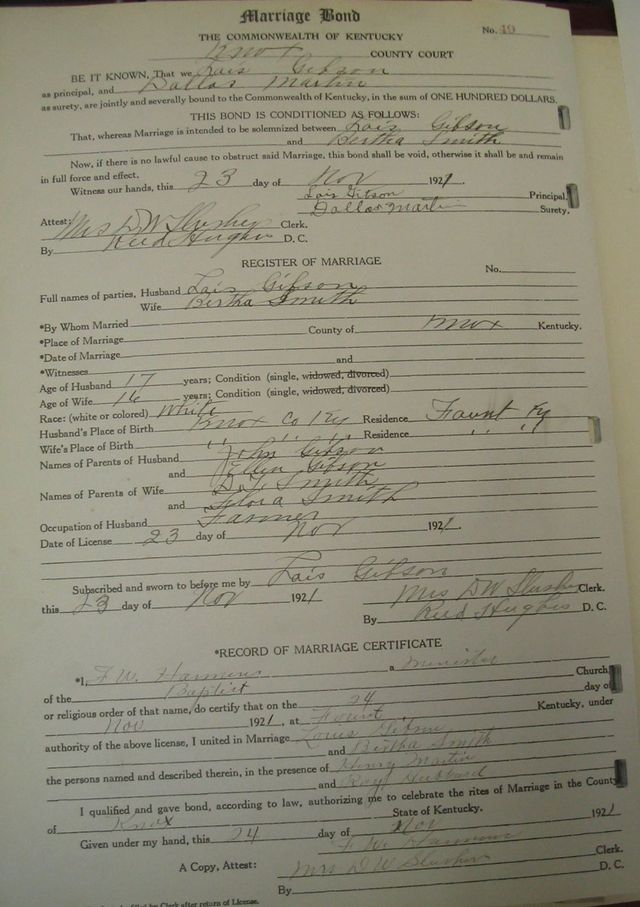 Marriage Bond
THE COMMONWEALTH OF KENTUCKY
No. 49
Knox COUNTY COURT
BE IT KNOWN, That we Lais Gibson
as principal, and Dallas Martin
as surety, are jointly and severally bound to the Commonwealth of Kentucky, in the sum of ONE HUNDRED DOLLARS.
THIS BOND IS CONDITIONED AS FOLLOWS:
That, whereas Marriage is intended to be solemnized between Lais Gibson
and Bertha Smith
Now, if there is no lawful cause to obstruct said Marriage, this bond shall be void, otherwise it shall be and remain
in full force and effect.
Witness our hands, this 23 day of Nov 1921.
Lais Gibson Principal.
Dallas Martin Surety.
Attest: Mrs D W Slusher Clerk.
By Reed Hughes D. C.
REGISTER OF MARRIAGE
No.
Full names of parties, Husband Lais Gibson
Wife Bertha Smith
*By Whom Married
*Place of Marriage County of Knox Kentucky.
*Date of Marriage
*Witnesses and
Age of Husband 17 years; Condition (single, widowed, divorced)
Age of Wife 16 years; Condition (single, widowed, divorced)
Race: (white or colored) White
Husband's Place of Birth Knox Co Ky Residence Fount Ky
Wife's Place of Birth " " " Residence " "
Names of Parents of Husband John Gibson
and Ellen Gibson
Names of Parents of Wife Smith
and Flora Smith
Occupation of Husband Farmer
Date of License 23 day of Nov 1921.
Subscribed and sworn to before me by Lais Gibson
this 23 day of Nov 1921
Mrs D W Slusher Clerk.
By Reed Hughes D. C.
*RECORD OF MARRIAGE CERTIFICATE
*I, F. W. a Minister
of the Baptist Church,
or religious order of that name, do certify that on the 24 day of
Nov 1921, at Fount, Kentucky, under
authority of the above license, I united in Marriage Louis Gibson
and Bertha Smith
the persons named and described therein, in the presence of Henry Martin
and Ray Hubbard
I qualified and gave bond, according to law, authorizing me to celebrate the rites of Marriage in the County
of Knox State of Kentucky.
Given under my hand, this 24 day of Nov 1921
F. W.
A Copy, Attest: Mrs D W Slusher Clerk.
By D. C.
filed by Clerk after return of License.